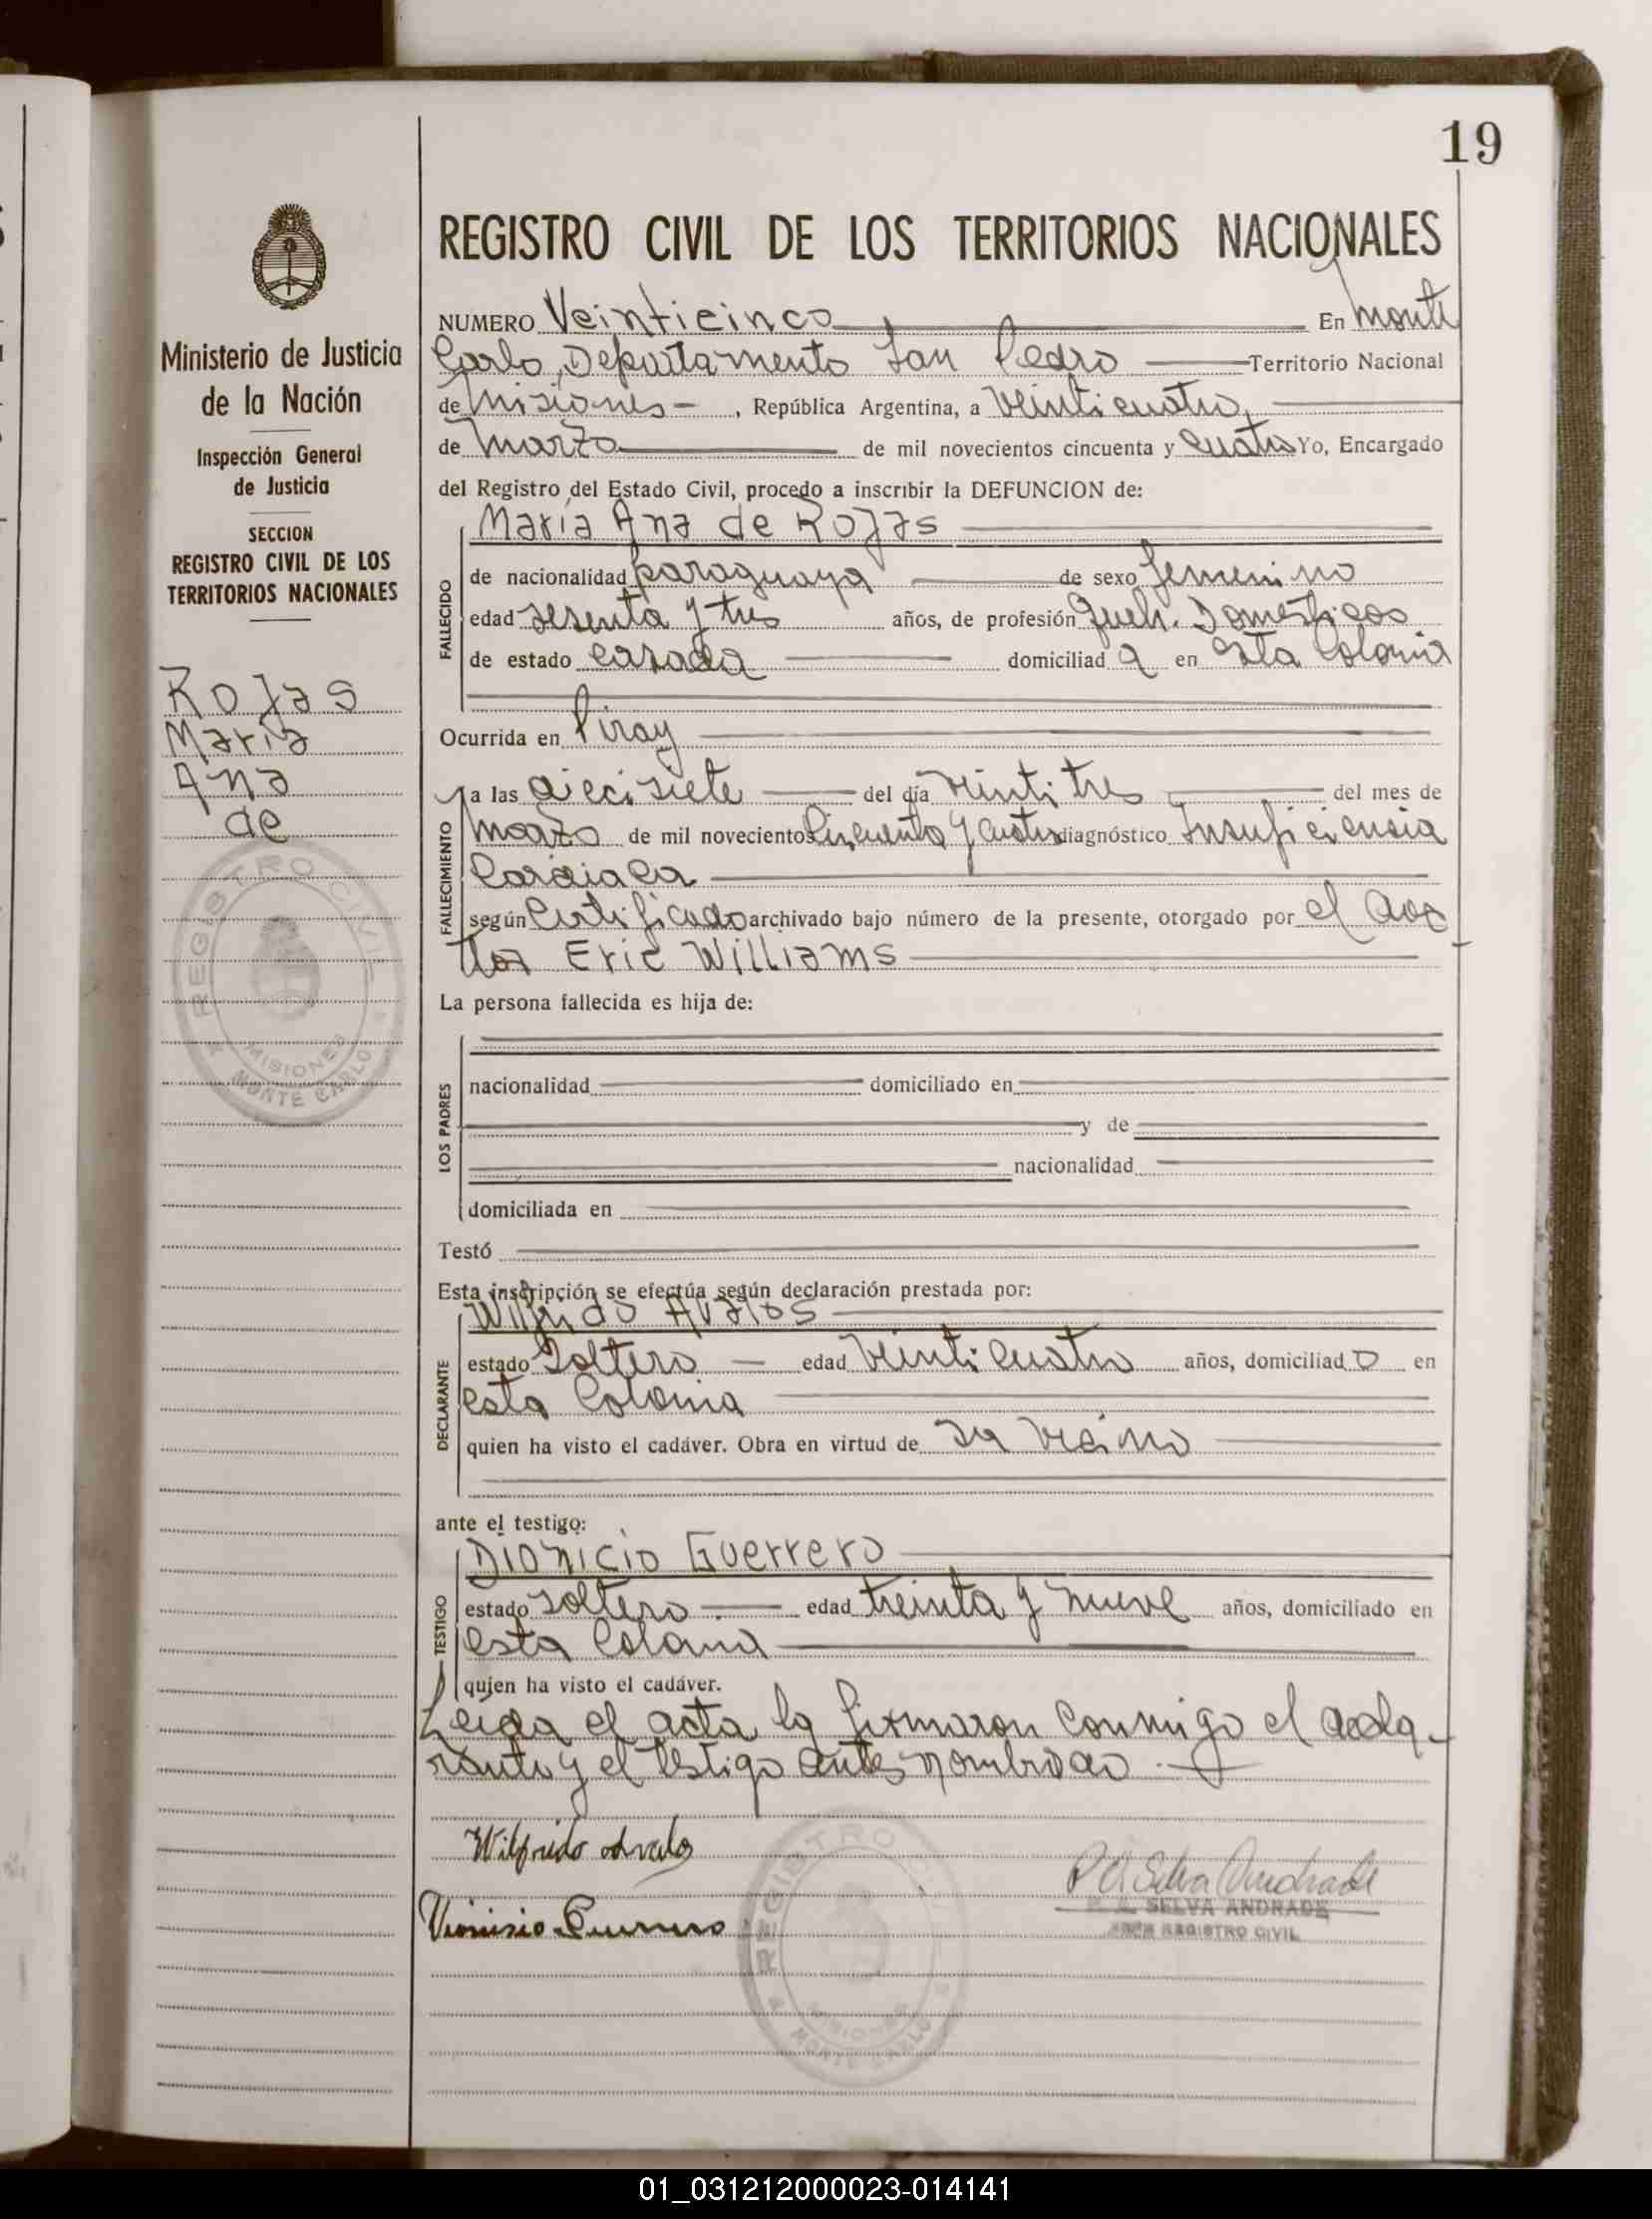 19
Ministerio de Justicia
de la Nación
Inspección General
de Justicia
SECCION
REGISTRO CIVIL DE LOS
TERRITORIOS NACIONALES
Rojas
María
Ana
de
REGISTRO CIVIL
MISIONES
MONTE CARLO
REGISTRO CIVIL DE LOS TERRITORIOS NACIONALES
NUMERO Veinticinco En Monte
Carlo, Departamento San Pedro Territorio Nacional
de Misiones - , República Argentina, a veinticuatro
de Marzo de mil novecientos cincuenta y cuatro Yo, Encargado
del Registro del Estado Civil, procedo a inscribir la DEFUNCION de:
María Ana de Rojas
FALLECIDO
de nacionalidad paraguaya de sexo femenino
edad sesenta y tres años, de profesión Queh. Domésticos
de estado casada domiciliad a en esta Colonia
Ocurrida en Piray
FALLECIMIENTO
a las diecisiete del día veintitres del mes de
marzo de mil novecientos cincuenta y cuatro diagnóstico Insuficiencia
Cardiaca
según certificado archivado bajo número de la presente, otorgado por el doc
tor Eric Williams
La persona fallecida es hija de:
LOS PADRES
nacionalidad domiciliado en
y de
nacionalidad
domiciliada en
Testó
Esta inscripción se efectúa según declaración prestada por:
Wilfrido Avalos
DECLARANTE
estado Soltero - edad veinticuatro años, domiciliad o en
esta Colonia
quien ha visto el cadáver. Obra en virtud de ser vecino
ante el testigo:
Dionicio Guerrero
TESTIGO
estado soltero - edad treinta y nueve años, domiciliado en
esta Colonia
quien ha visto el cadáver.
Leida el acta la firmaron conmigo el decla-
rante y el testigo antes nombrado.
Wilfrido Avalos
Dionisio Guerrero
Selva Andrade
SELVA ANDRADE
JEFE REGISTRO CIVIL
REGISTRO
MISIONES
MONTE CARLO
01_031212000023-014141